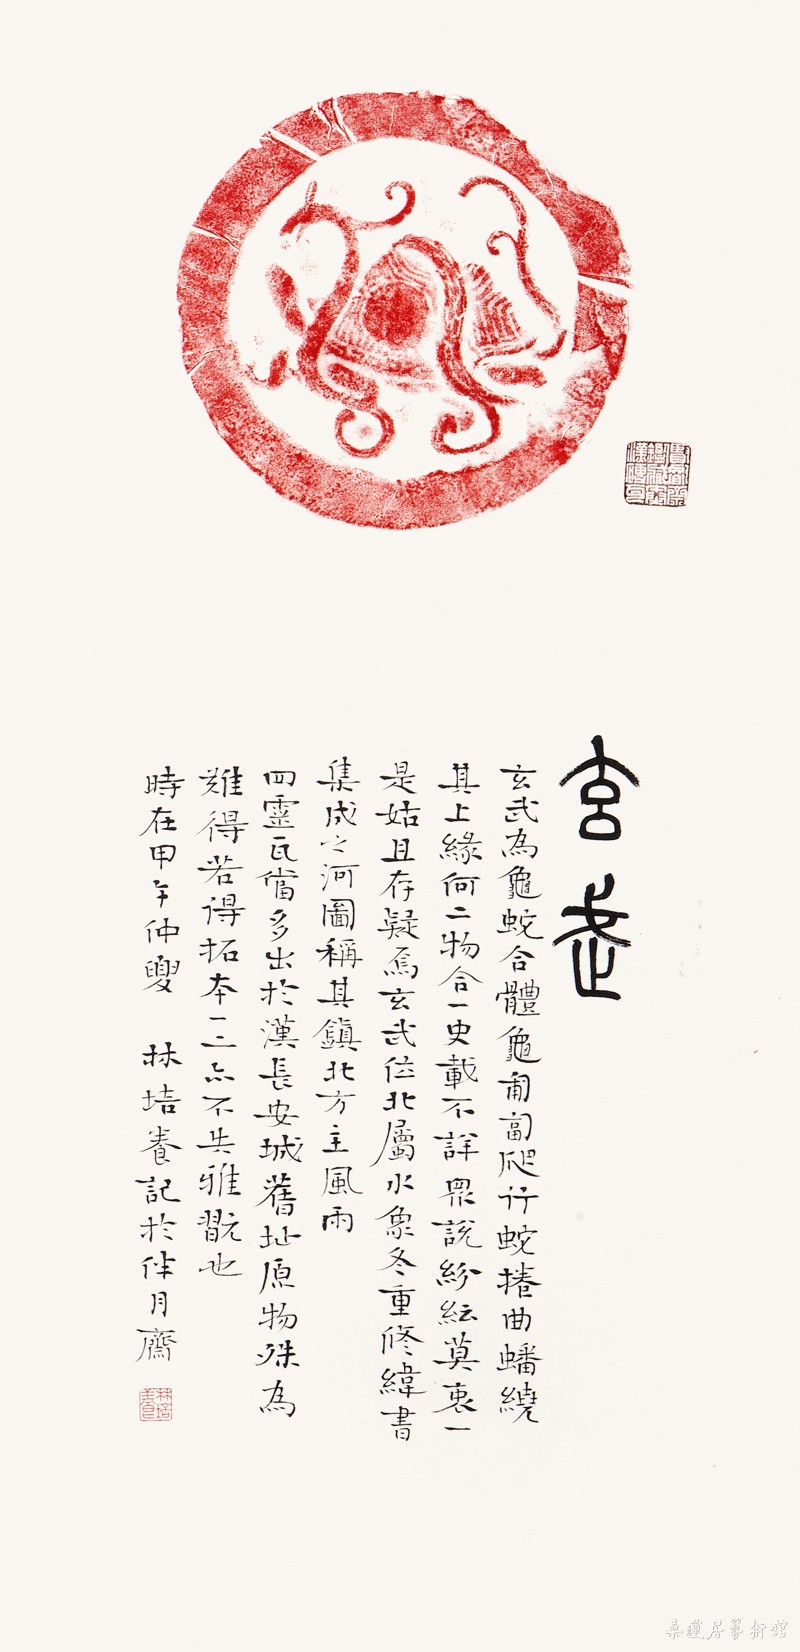 玄武
玄武為龜蛇合體龜匍匐爬行蛇捲曲蟠繞
其上緣何二物合一史載不詳眾說紛紜莫衷一
是姑且存疑焉玄武位北屬水象冬重修緯書
集成之河圖稱其鎮北方主風雨
四靈瓦當多出於漢長安城舊址原物殊為
難得若得拓本一二亦不失雅翫也
時在甲午仲夏 林培養記於伴月齋
林培養印
桑蓮居藝術館